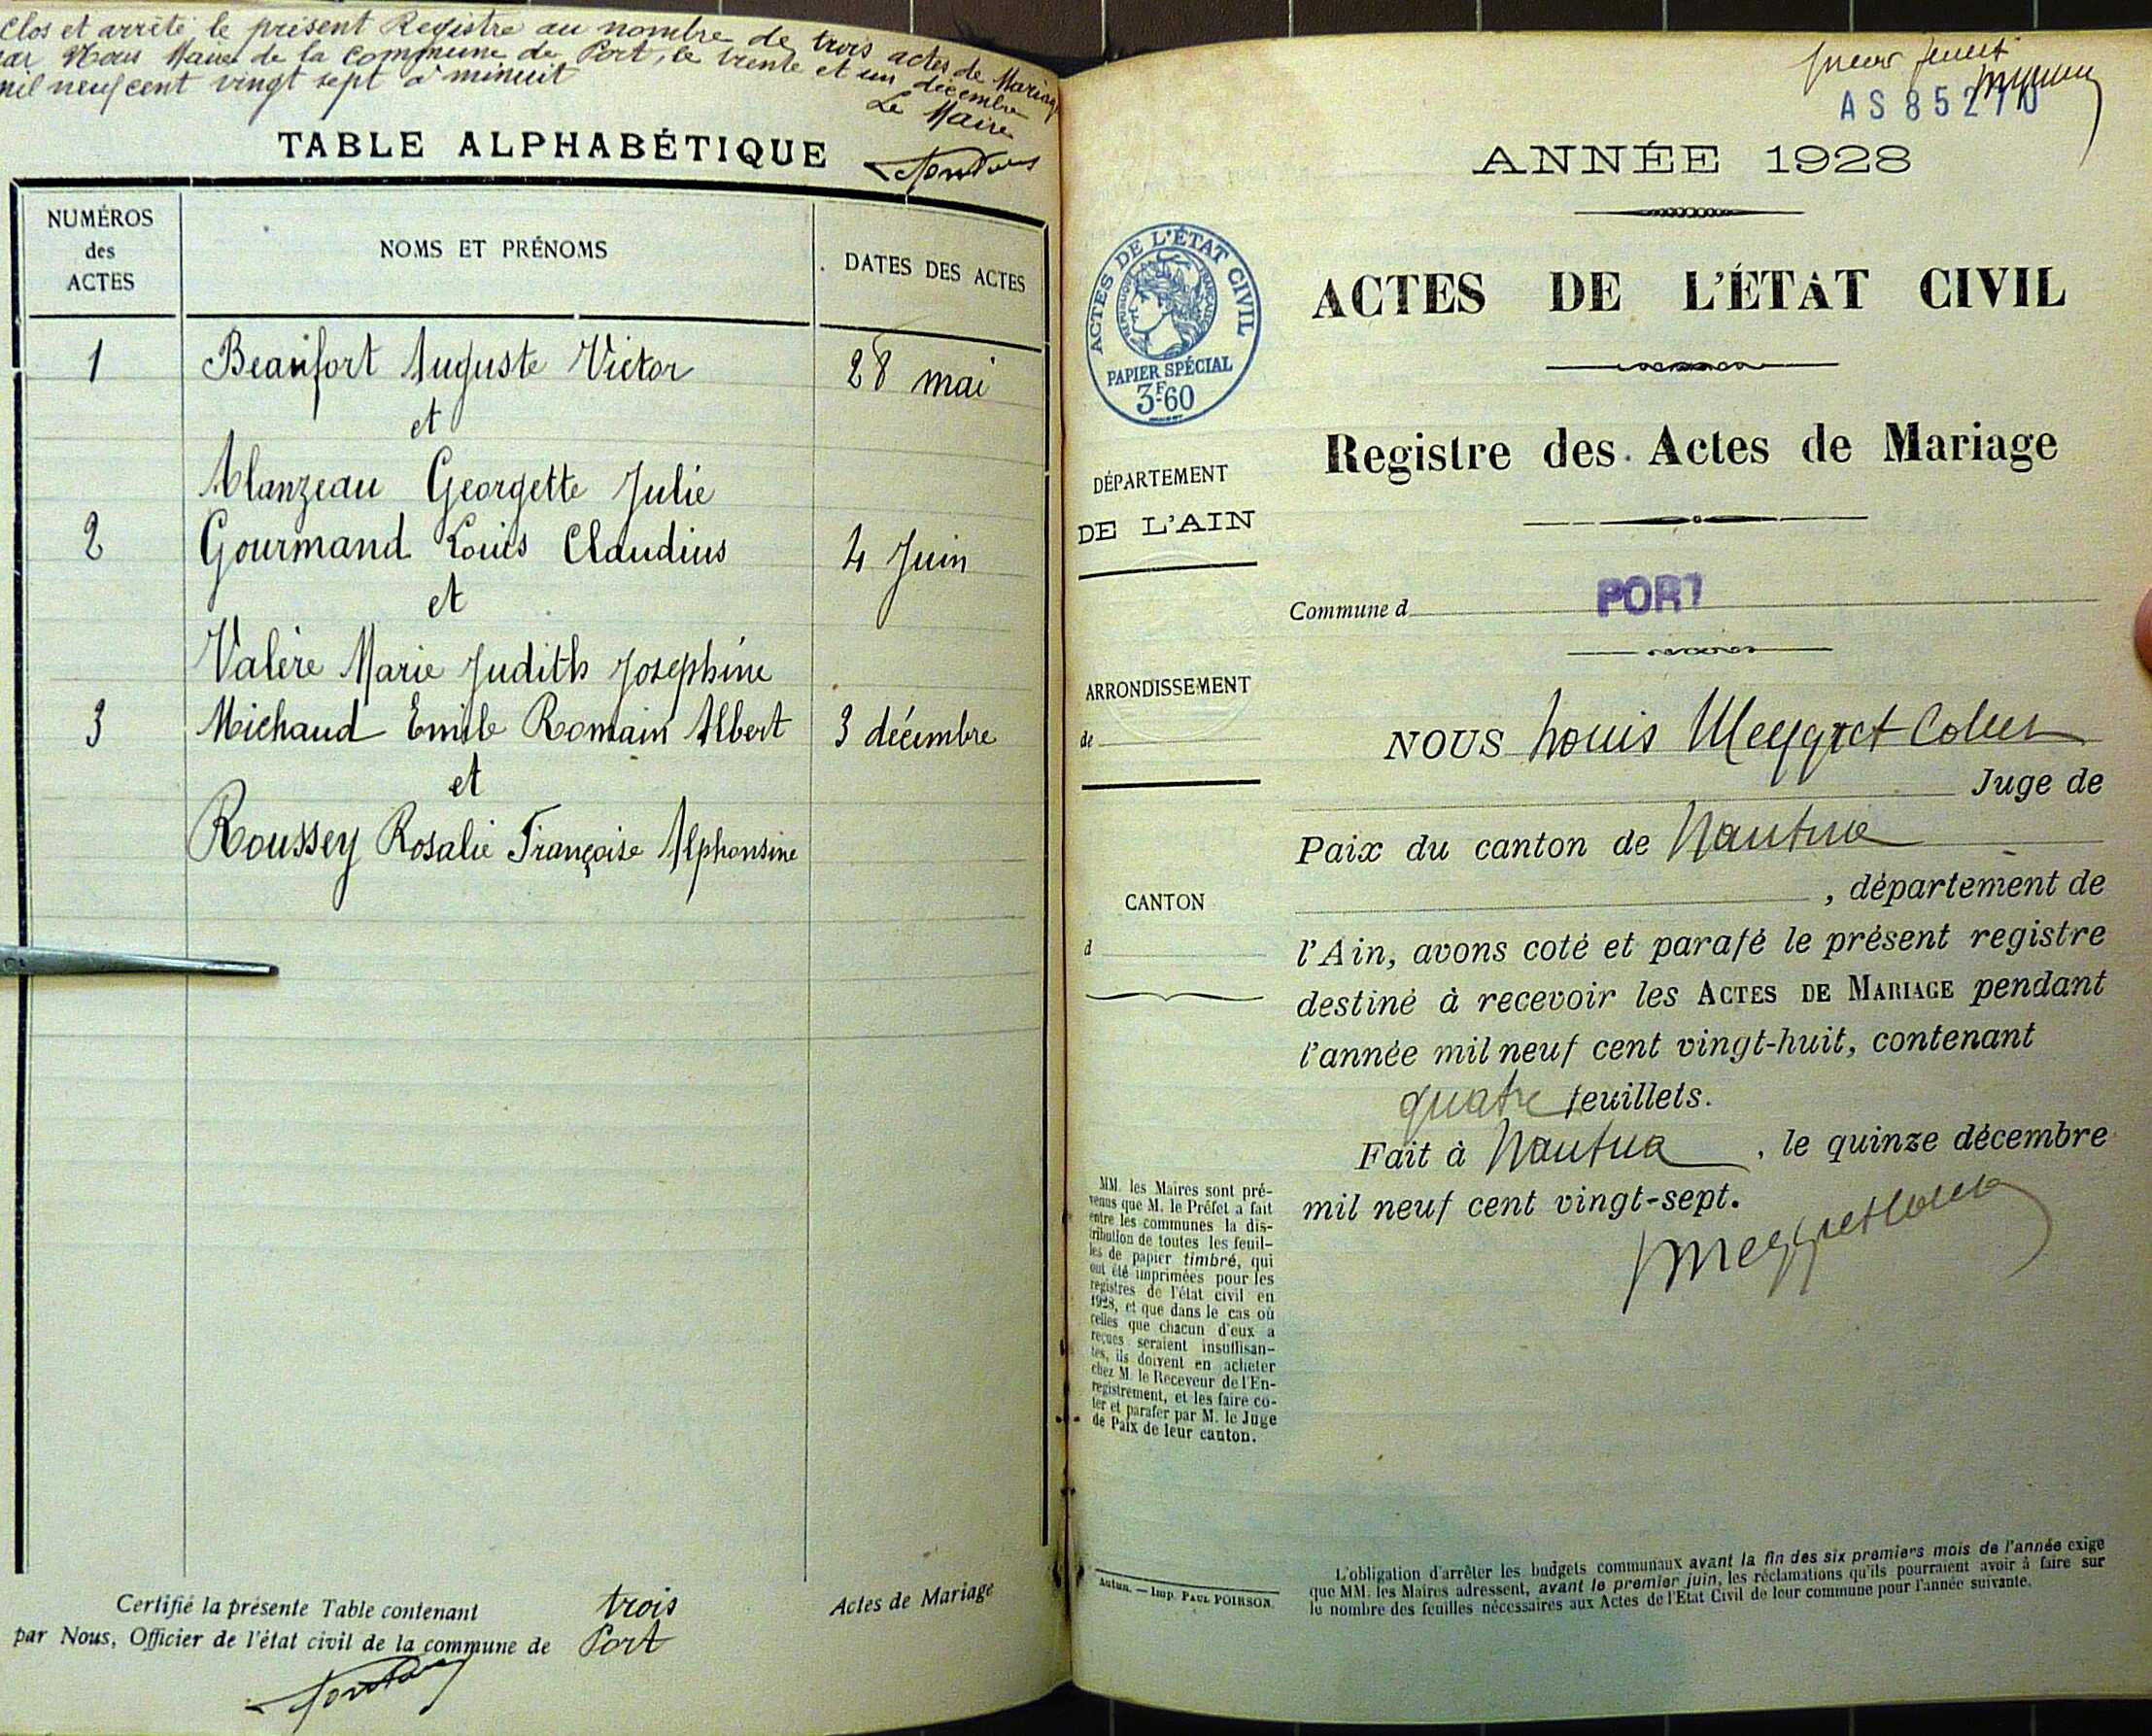 Clos et arrêté le présent Registre au nombre de trois actes de Mariage
par Nous Maire de la Commune de Port, le trente et un décembre
mil neuf cent vingt sept à minuit
Le Maire
TABLE ALPHABÉTIQUE
NUMÉROS des ACTES
NOMS ET PRÉNOMS
DATES DES ACTES
1 Beaufort Auguste Victor 28 mai
et
Alanzeau Georgette Julie
2 Gourmand Louis Claudius 4 Juin
et
Valère Marie Judith Josephine
3 Michaud Emile Romain Albert 3 décembre
et
Roussey Rosalie Françoise Alphonsine
Certifié la présente Table contenant trois Actes de Mariage
par Nous, Officier de l'état civil de la commune de Port
AS 85210
ANNÉE 1928
ACTES DE L'ÉTAT CIVIL
Registre des Actes de Mariage
ACTES DE L'ÉTAT CIVIL
RÉPUBLIQUE FRANÇAISE
PAPIER SPÉCIAL
3F60
DÉPARTEMENT
DE L'AIN
ARRONDISSEMENT
de
CANTON
d
MM. les Maires sont pré-
venus que M. le Préfet a fait
entre les communes la dis-
tribution de toutes les feuil-
les de papier timbré, qui
ont été imprimées pour les
registres de l'état civil en
1928, et que dans le cas où
celles que chacun d'eux a
reçues seraient insuffisan-
tes, ils doivent en acheter
chez M. le Receveur de l'En-
registrement, et les faire co-
ter et parafer par M. le Juge
de Paix de leur canton.
Autun. — Imp. PAUL POIRSON.
Commune d PORT
NOUS Louis Meygret Collet
Juge de
Paix du canton de Nantua
, département de
l'Ain, avons coté et parafé le présent registre
destiné à recevoir les ACTES DE MARIAGE pendant
l'année mil neuf cent vingt-huit, contenant
quatre feuillets.
Fait à Nantua, le quinze décembre
mil neuf cent vingt-sept.
L'obligation d'arrêter les budgets communaux avant la fin des six premiers mois de l'année exige
que MM. les Maires adressent, avant le premier juin, les réclamations qu'ils pourraient avoir à faire sur
le nombre des feuilles nécessaires aux Actes de l'Etat Civil de leur commune pour l'année suivante.